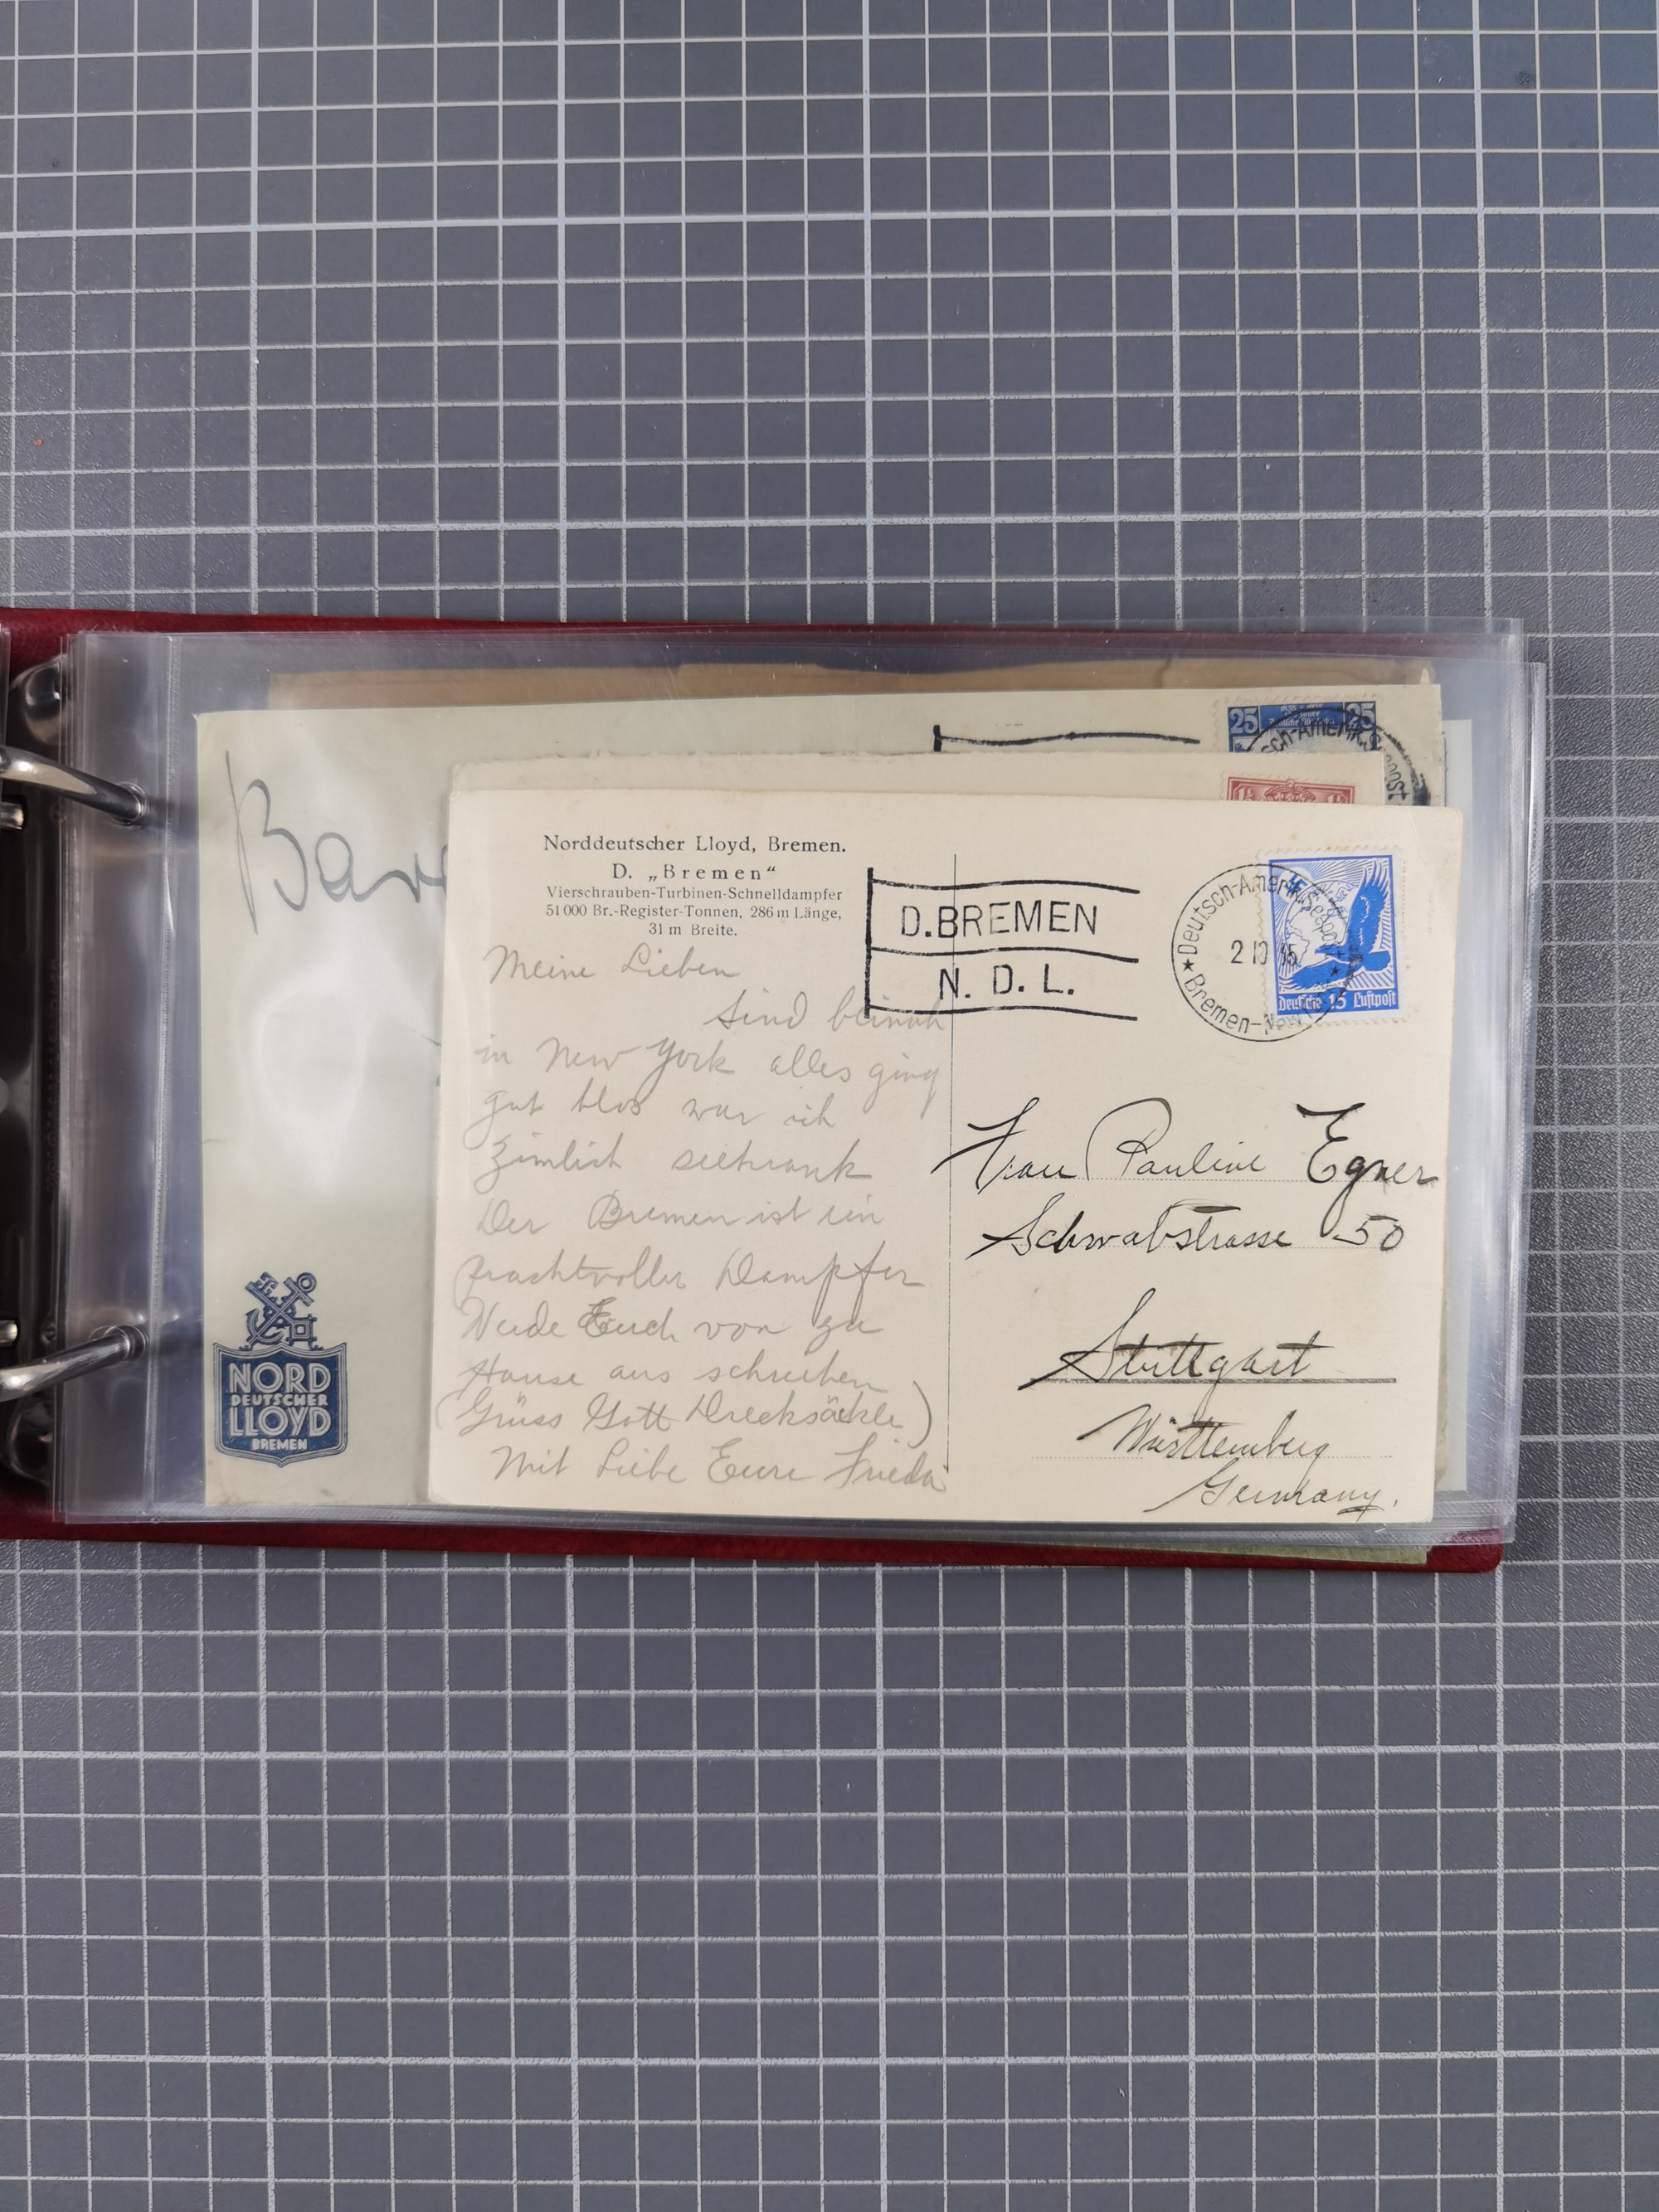 25 25
Norddeutscher Lloyd, Bremen.
D. „Bremen“
Vierschrauben-Turbinen-Schnelldampfer
51 000 Br.-Register-Tonnen, 286 m Länge,
31 m Breite.
D. BREMEN
N. D. L.
Deutsch-Amerik. Seepost
2 10 35
Bremen-New
Deutsche 15 Luftpost
Meine Lieben
Sind beinah
in New York alles ging
gut blos war ich
zimlich seekrank
Der Bremen ist ein
prachtvoller Dampfer
Werde Euch von zu
Hause aus schreiben
(Grüss Gott Drecksäckle)
Mit Liebe Eure Frieda
Frau Pauline Egner
Schwabstrasse 50
Stuttgart
Württemberg
Germany.
NORD
DEUTSCHER
LLOYD
BREMEN